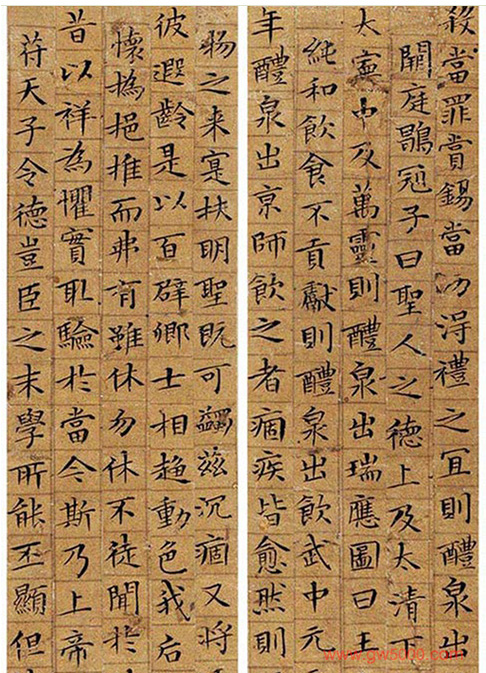 殺當罪賞錫當功得禮之宜則醴泉出
闕庭鶡冠子曰聖人之德上及太清下
太寧中及萬靈則醴泉出瑞應圖曰王
純和飲食不貢獻則醴泉出飲武中元
年醴泉出京師飲之者痼疾皆愈然則
物之来寔扶明聖既可蠲茲沉痼又將
彼遐齡是以百辟卿士相趨動色我后
懷撝挹推而弗有雖休勿休不徒聞於
昔以祥為懼實取驗於當今斯乃上帝
符天子令德豈臣之末學所能丕顯但